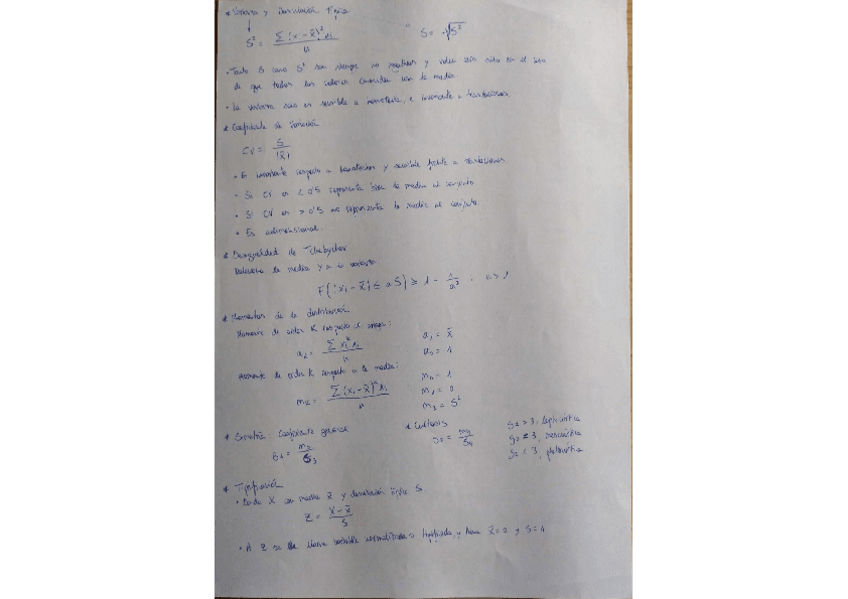 * Varianza y Desviación Típica
S² = Σ(xᵢ - x̄)² nᵢ / n    S = +√S²
• Tanto S como S² son siempre no negativas y valen cero solo en el caso
de que todos los valores coincidan con la media.
• La varianza solo es sensible a , e invariante a traslaciones
* Coeficiente de Variación
CV = S / |x̄|
• Es invariante respecto a y sensible frente a traslaciones
• Si CV es < 0'5 representa bien la media al conjunto
• Si CV es > 0'5 no representa la media al conjunto
• Es adimensional
* Desigualdad de Tchebychev
Relaciona la media y la varianza
F(|xᵢ - x̄| ≤ aS) ≥ 1 - 1/a² ; a > 1
* Momentos de la distribución
Momento de orden K respecto al origen:
Σ xᵢᵏ nᵢ / n    a₁ = x̄
a₀ = 1
Momento de orden K respecto a la media:    m₀ = 1
Σ(xᵢ - x̄)ᵏ nᵢ / n    m₁ = 0
m₂ = S²
* Simetría: Coeficiente general    * Curtosis    g₂ > 3, leptocúrtica
m₃ / S³    g₂ = m₄ / S⁴    mesocúrtica
g₂ < 3, platicúrtica
* Tipificación
• Dada X con media x̄ y desviación típica S.
Z = X - x̄ / S
• A Z se le llama variable normalizada o tipificada, y tiene x̄ = 0 y S = 1